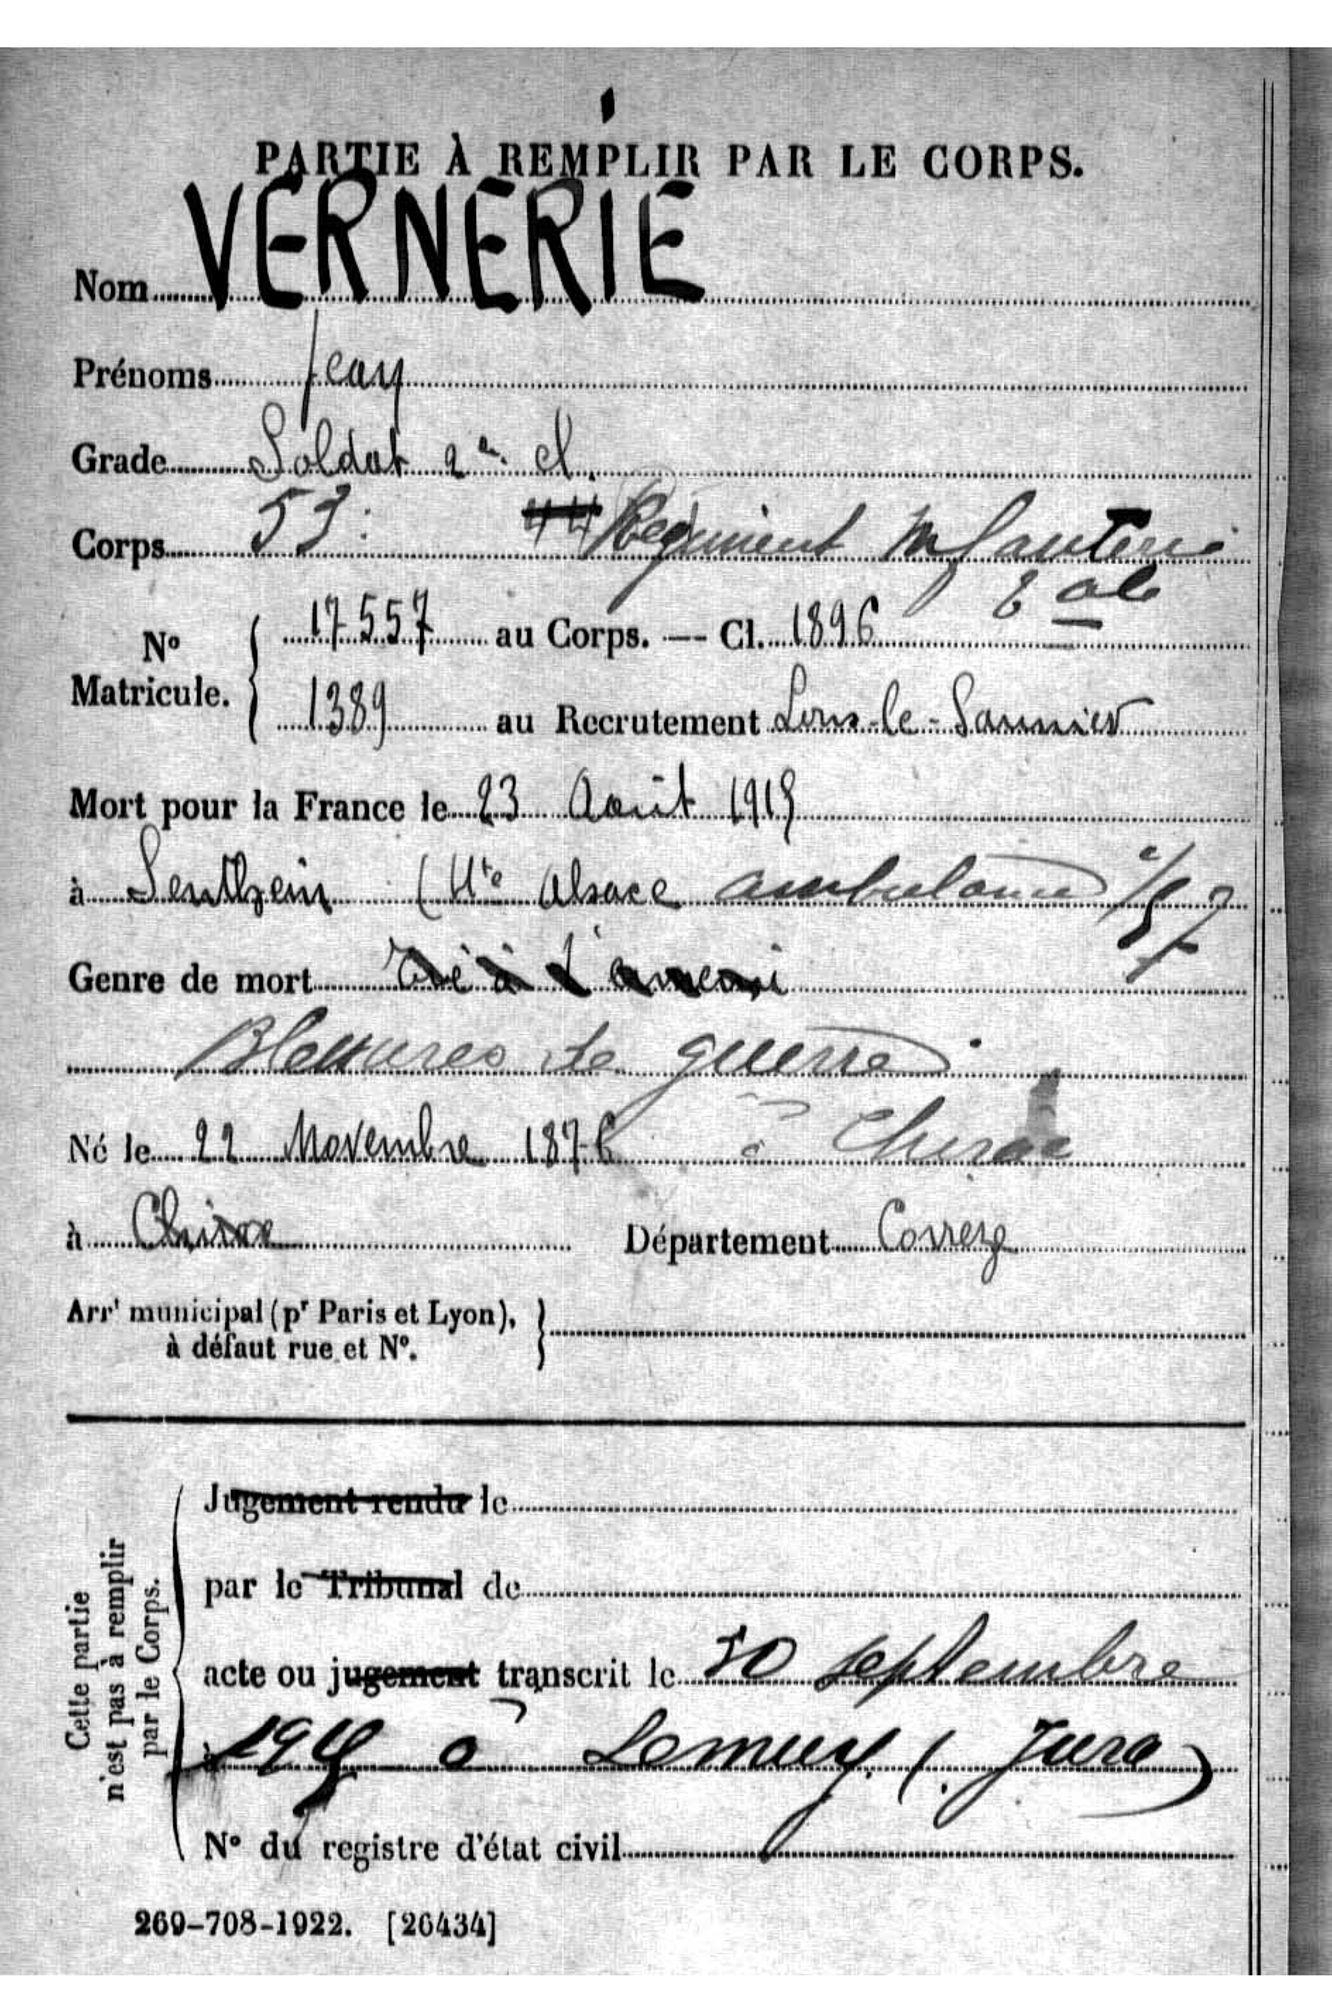 PARTIE À REMPLIR PAR LE CORPS.
Nom VERNERIE
Prénoms Jean
Grade Soldat 2e cl.
Corps 53: 44 Régiment Infanterie
Cale
No Matricule. 17557 au Corps. — Cl. 1896
1389 au Recrutement Lons-le-Saunier
Mort pour la France le 23 Août 1915
à Senthein (Hte Alsace ambulance 1/57
Genre de mort Tué à l'ennemi
Blessures de guerre
Né le 22 Novembre 1876 à Chirac
à Département Correze
Arrt municipal (pr Paris et Lyon), à défaut rue et No.
Cette partie n'est pas à remplir par le Corps.
Jugement rendu le
par le Tribunal de
acte ou jugement transcrit le 30 septembre
à 1915 à Lemuy. (Jura)
No du registre d'état civil
269-708-1922. [26434]